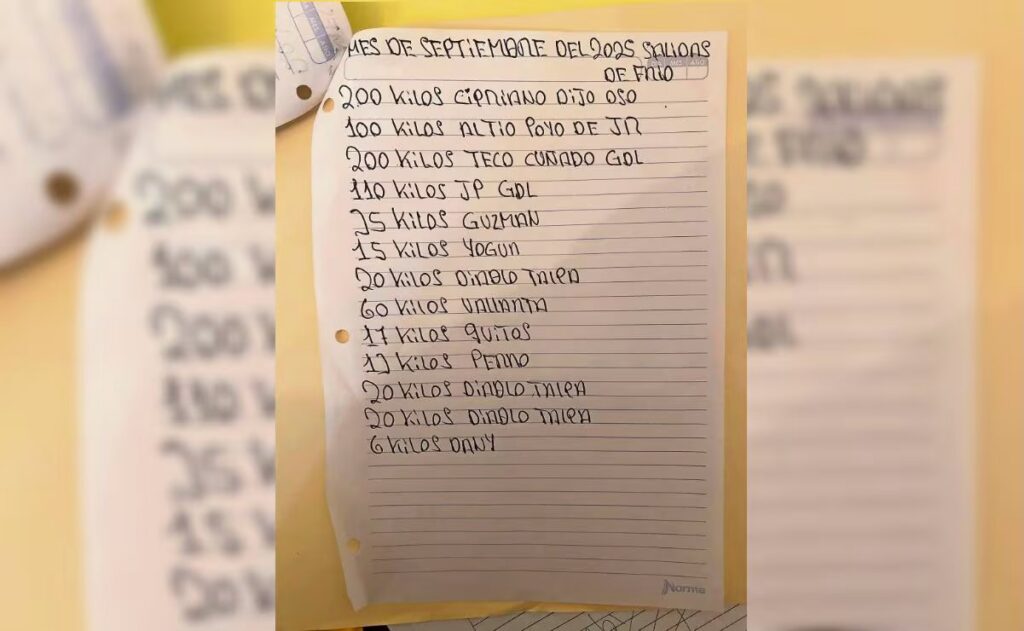 MES DE SEPTIEMBRE DEL 2025 SALIDAS
DE FRIO
MES AÑO
200 KILOS CIPRIANO DIJO OSO
100 KILOS ALTIO POYO DE JR
200 KILOS TECO CUÑADO GDL
110 KILOS JP GDL
35 KILOS GUZMAN
15 KILOS YOGUR
20 KILOS DIABLO TALPA
60 KILOS VALLARTA
17 KILOS QUITOS
13 KILOS PERRO
20 KILOS DIABLO TALPA
20 KILOS DIABLO TALPA
6 KILOS DANY
Norma